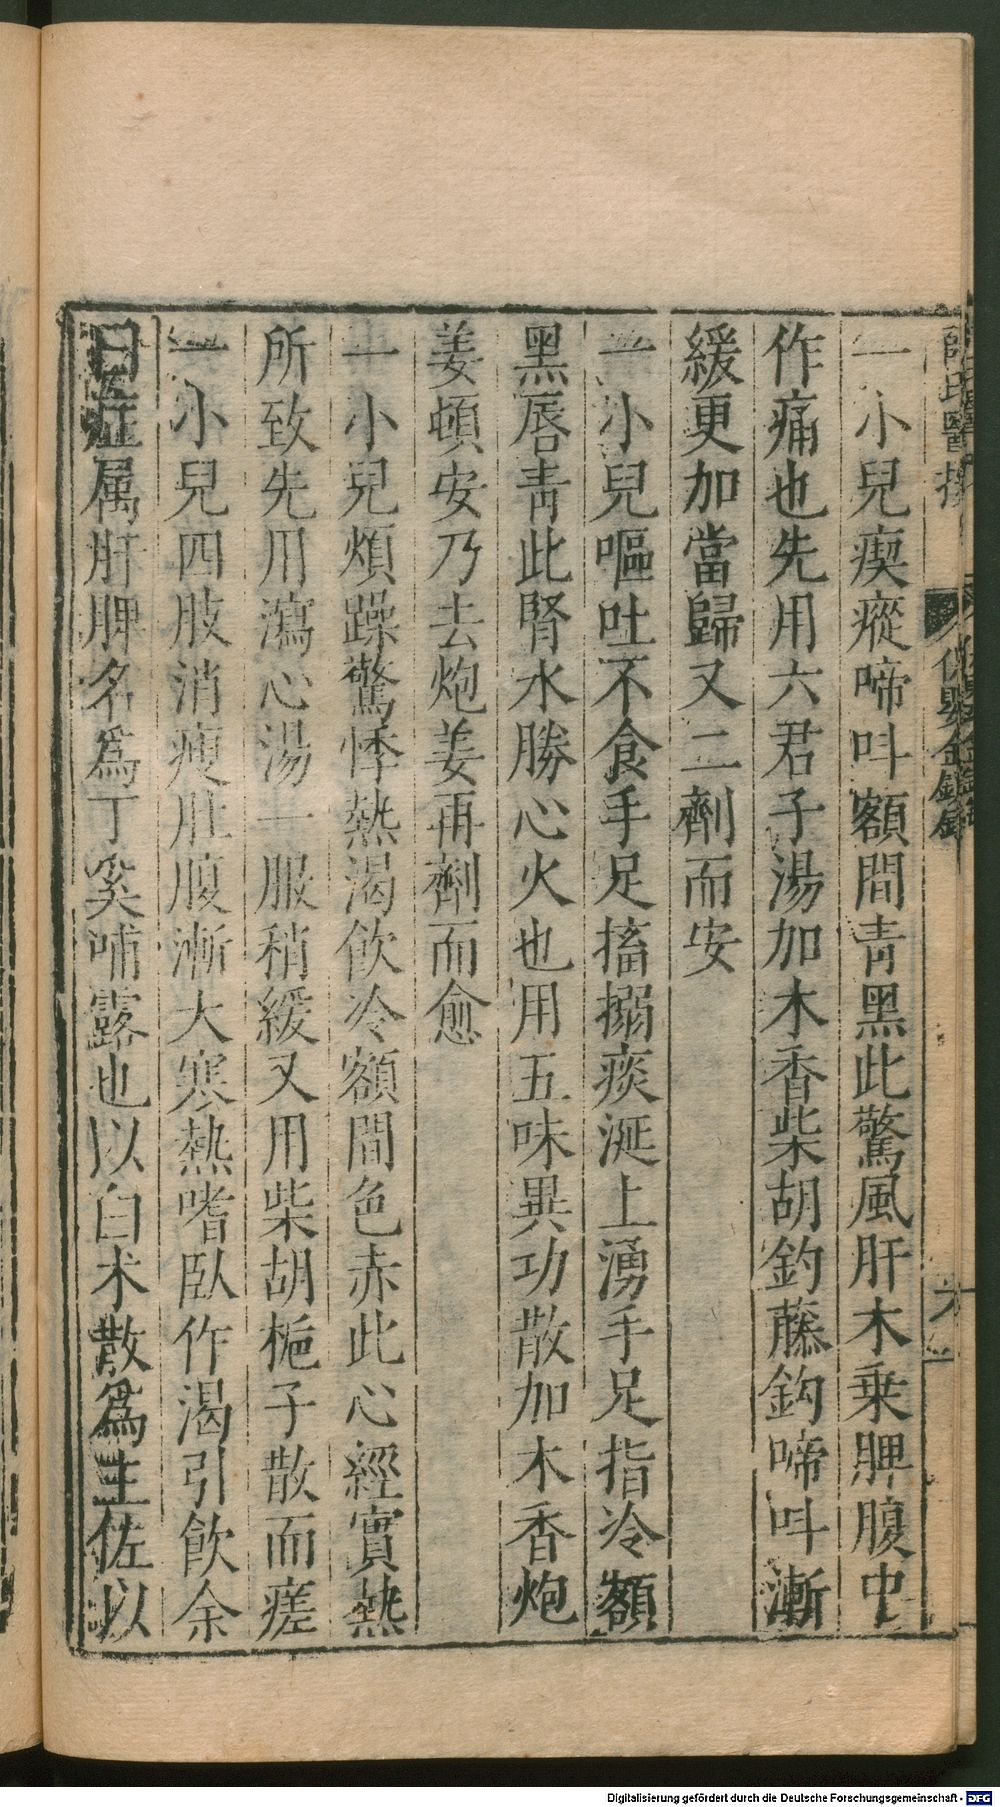 一小兒瘈瘲啼呌額間青黑此驚風肝木乗脾腹中
作痛也先用六君子湯加木香柴胡釣藤鈎啼呌漸
緩更加當歸又二劑而安
一小兒嘔吐不食手足搐搦痰涎上湧手足指冷額
黑唇青此腎水勝心火也用五味異功散加木香炮
姜頓安乃去炮姜再劑而愈
一小兒煩躁驚悸熱渴飲冷額間色赤此心經實熱
所致先用瀉心湯一服稍緩又用柴胡梔子散而瘥
一小兒四肢消瘦肚腹漸大寒熱嗜臥作渴引飲余
曰症属肝脾名爲丁奚哺露也以白朮散爲主佐以
Digitalisierung gefördert durch die Deutsche Forschungsgemeinschaft - DFG